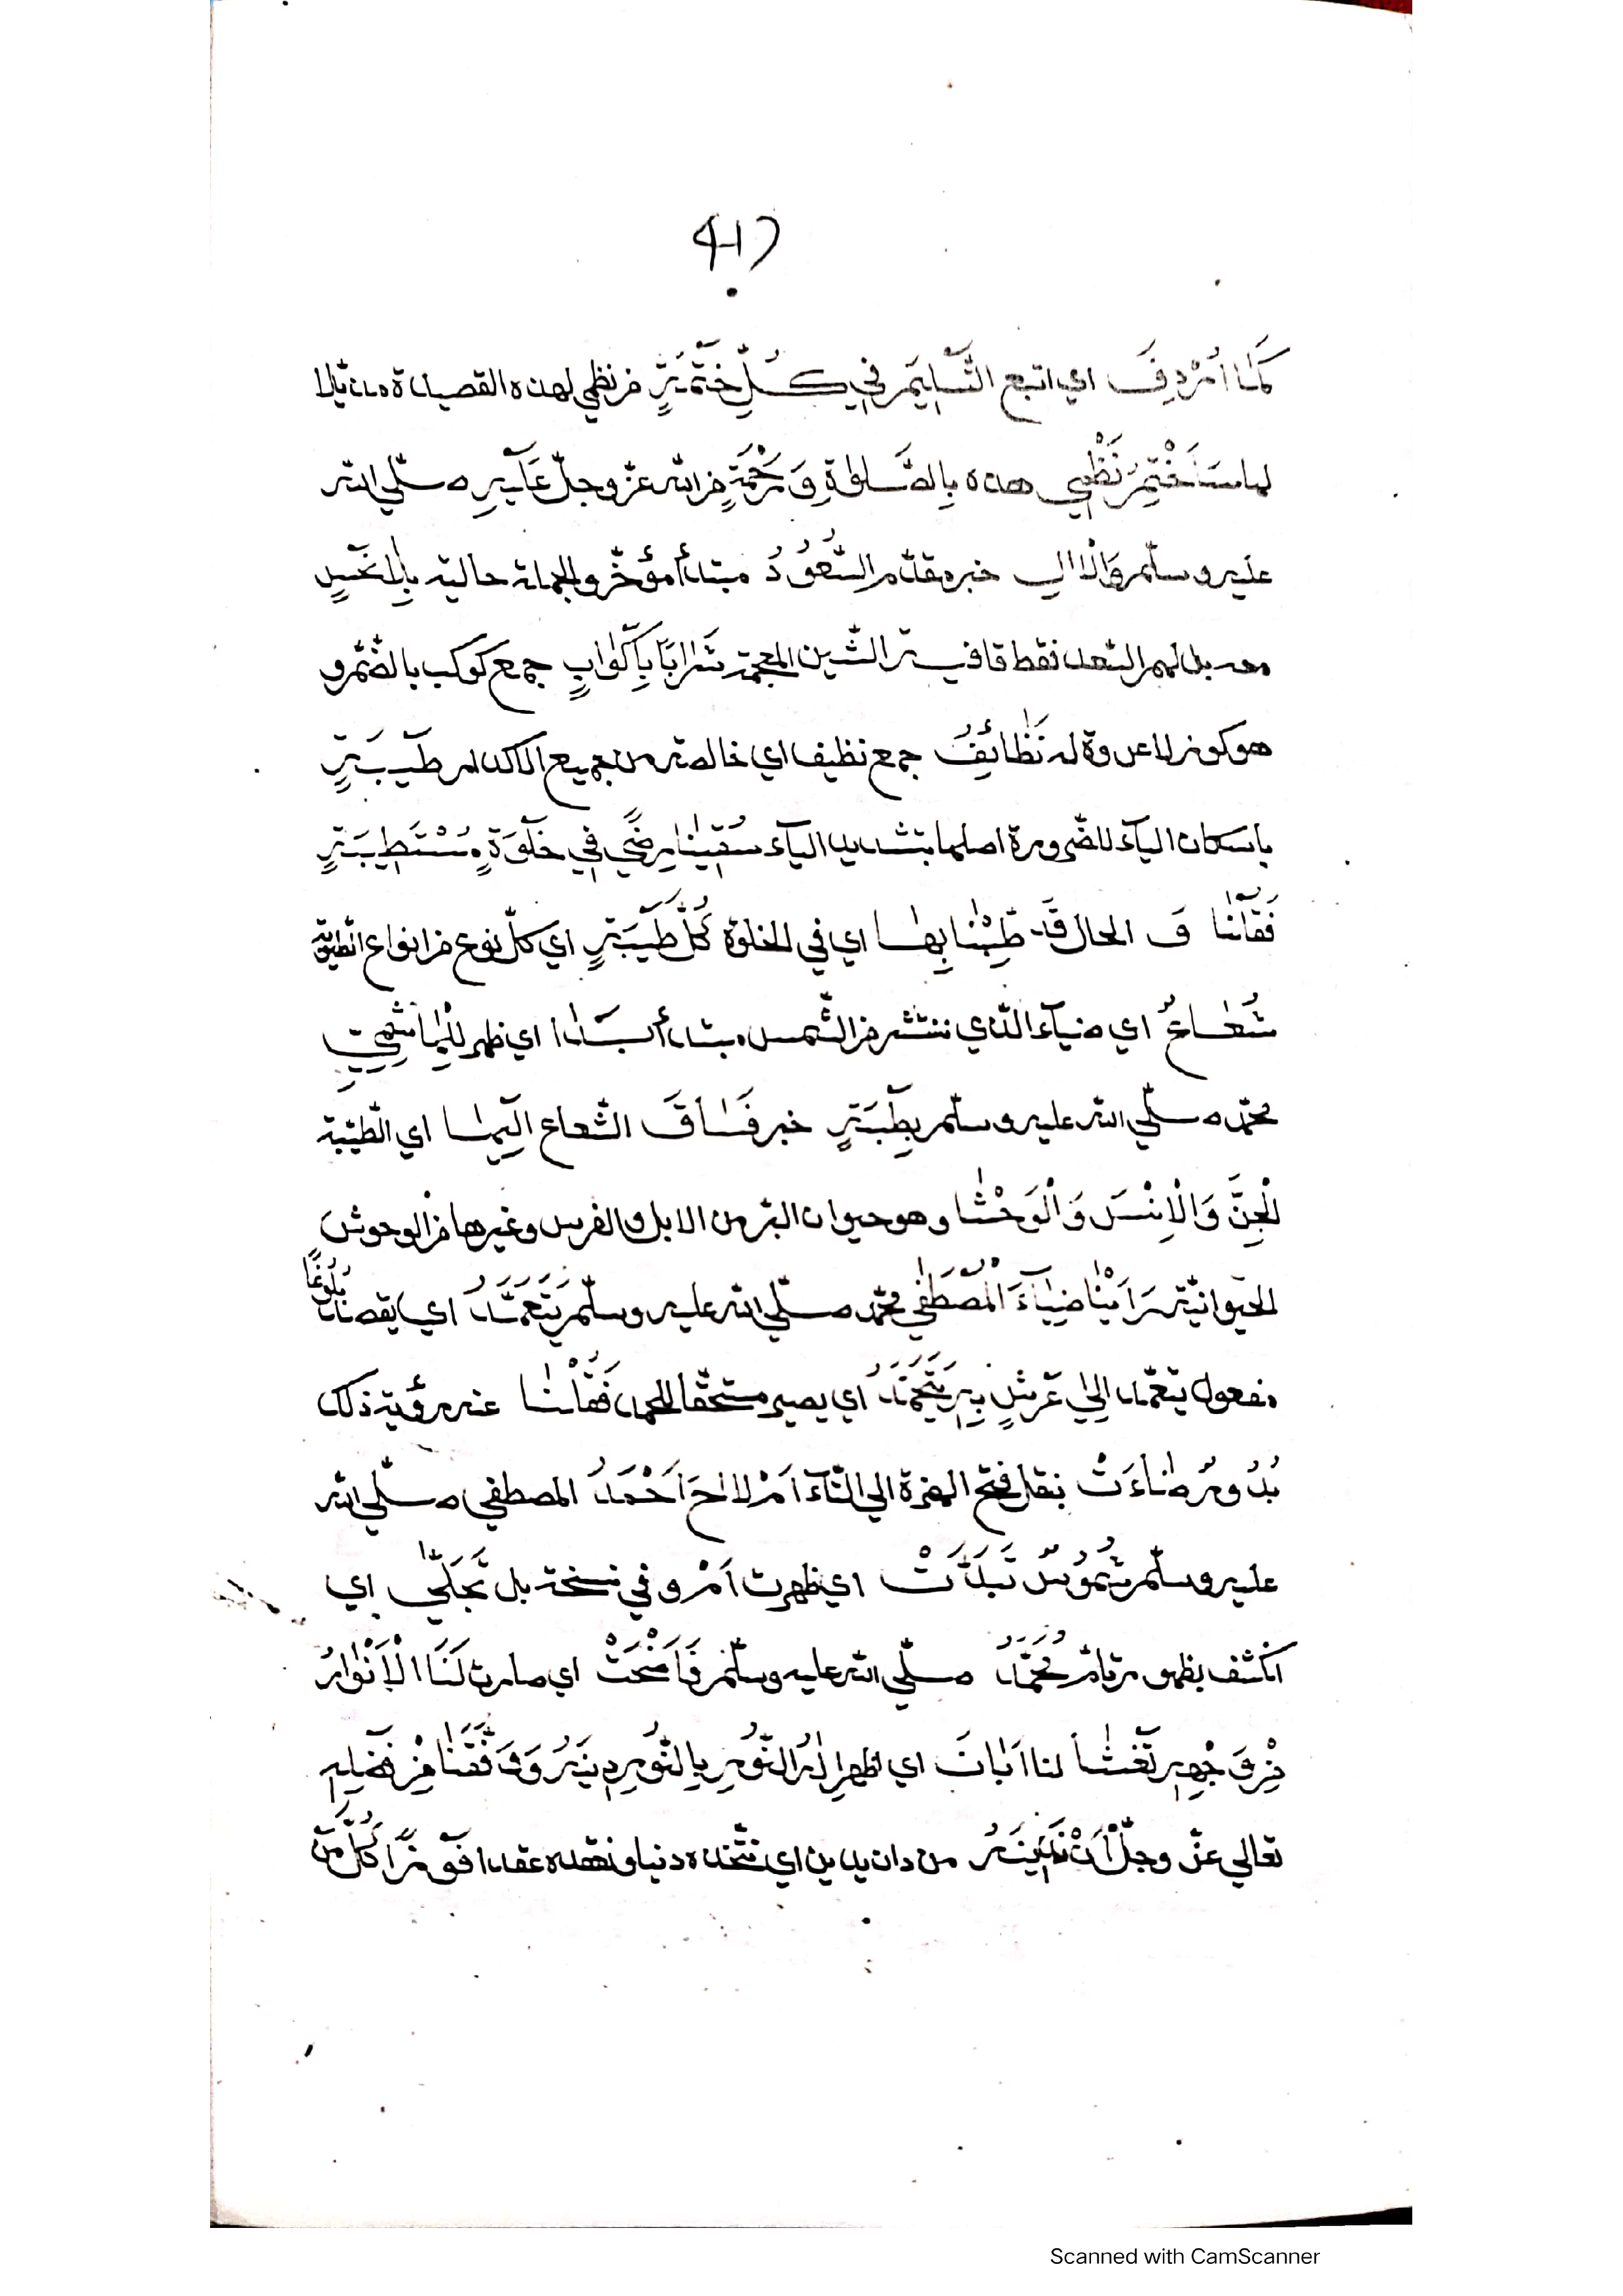 (41)
كَمَا اُرْدِفَ اي اتبع التَّسْلِيْمَ فِي كُلِّ خَتْمَةٍ من نظمي لهذه القصيدة
نَظْمِي هذه بِالصَّلوٰةِ وَرَحْمَةٍ من الله عز وجلّ عَلَيْهِ صلّي الله
عليه وسلّم وَالْاٰلِ خبر مقدّم السُّعُوْدُ مبتدأ مؤخّر والجملة حالية
قافية الشين المعجمة شَرَابًا بِاَكْوَابٍ جمع كوكب بالضّمّ و
هو كوز لا عروة له نَظَائِفُ جمع نظيف اي خالصة من جميع الاكدار طَيِّبَةٍ
باسكان الياء للضرورة اصلها بتشديد الياء سُقِيْنَا رِضًي فِي خَلْوَةٍ مُسْتَطِيْبَةٍ
فَقُلْنَا وَ الحال قَدْ طِبْنَا بِهَا اي في الخلوة كُلَّ طَيِّبَةٍ اي كلّ نوع من انواع
شُعَاعٌ اي ضياء الّذي ننتشر من الشّمس مبتدأ بَدَا اي ظهر
محمّد صلّي الله عليه وسلّم بِطَيْبَةٍ خبر فَسَاقَ الشعاع اِلَيْهَا اي الطّيّبة
الْجِنَّ وَالْاِنْسَ وَالْوَحْشَا وهو حيوان البرّ من الابل والفرس وغيرها من الوحوش
الحيوانيّة رَاَيْنَا ضِيَاءَ الْمُصْطَفٰي محمّد صلّي الله عليه وسلّم يَتَعَمَّدُ اي يقصد بُلُوْغًا
مفعول يتعمّد اِلٰي عَرْشٍ بِهِ يَتَحَمَّدُ اي يصير مستحقّا للحمد فَقُلْنَا عند رؤية ذلك
بُدُوْرٌ ضَاءَتْ بنقل فتح الهمزة الي التّاء اَمْ لَاحَ اَحْمَدُ المصطفي صلّي الله
عليه وسلّم شُمُوْسٌ تَبَدَّتْ اي ظهرت اَمْ وفي نسخة بل تَجَلّٰي اي
انكشف بظهور تامّ مُحَمَّدٌ صلّي الله عليه وسلّم فَاَضْحَتْ اي صارت لَنَا الْاَنْوَارُ
مِنْ وَجْهِهِ تَغْشَا لنا اَبَانَ اي اظهر اِلٰهُ النُّوْرِ بِالنُّوْرِ دِيْنَهُ وَوَفَّقَنَا مِنْ فَضْلِهِ
تعالي عزّ وجلّ اَنْ نَدِيْنَهُ من دان يدين اي نتّخذه دينا ونعقده عقدا